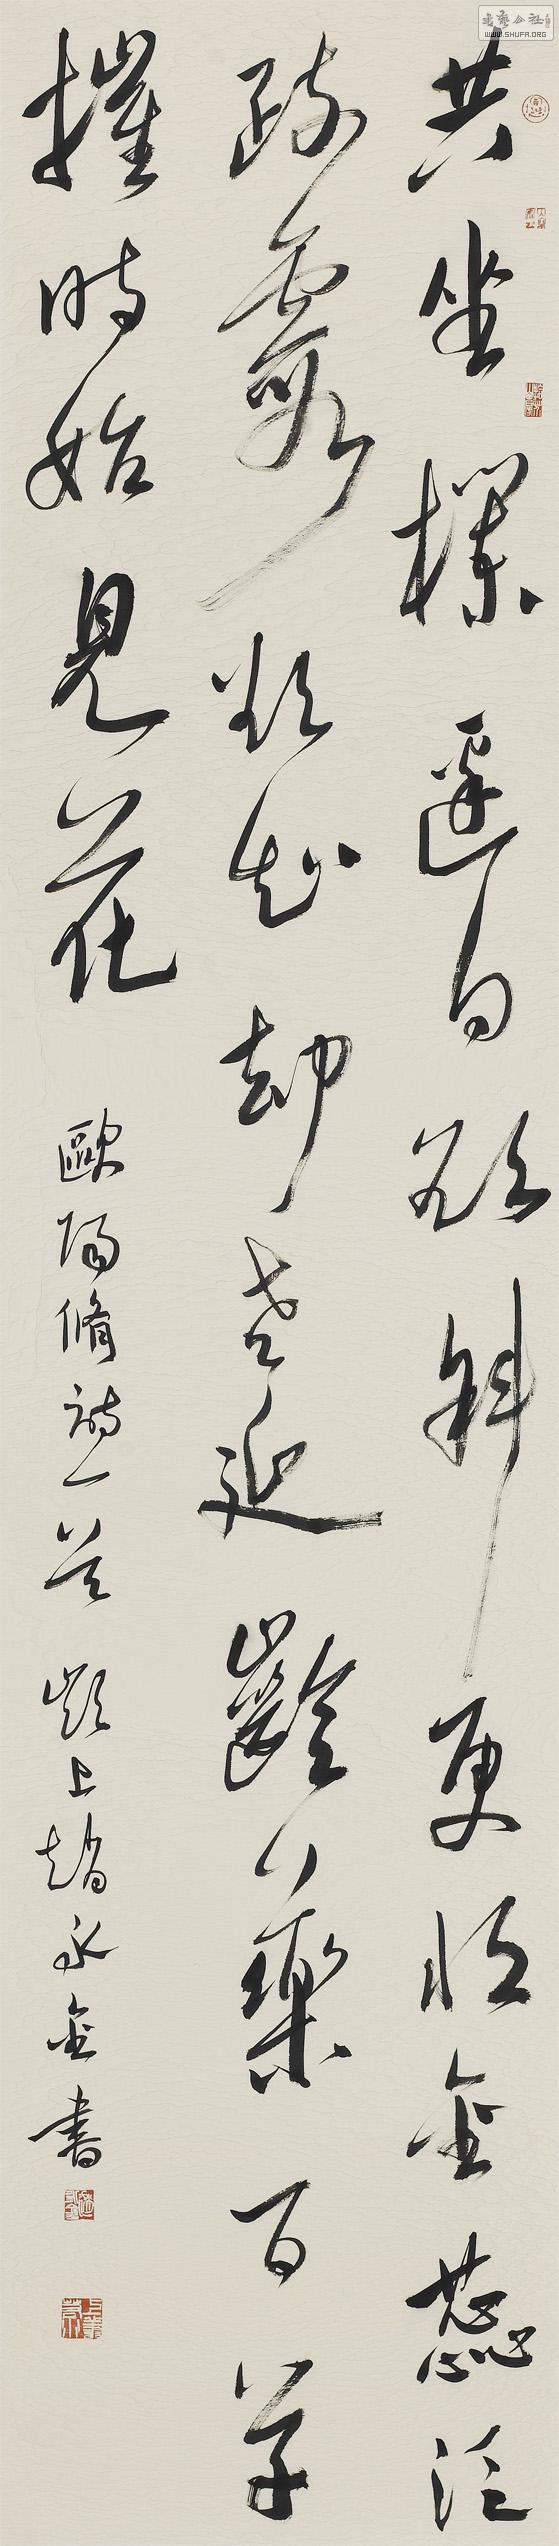 書藝公社
WWW.SHUFA.ORG
共坐欄邊日欲斜更將金蕊泛
流霞欲知却老延齡藥百草
摧時始見花 歐陽脩詩一首 潁上趙永金書